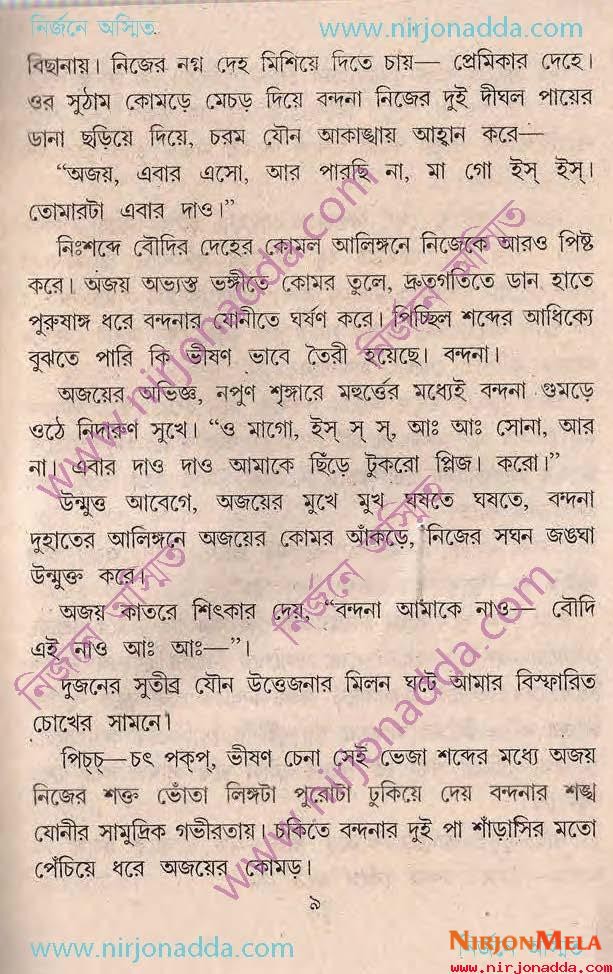 নির্জনে অস্মিত www.nirjonadda.com
বিছানায়। নিজের নগ্ন দেহ মিশিয়ে দিতে চায়— প্রেমিকার দেহে।
ওর সুঠাম কোমড়ে মেচড় দিয়ে বন্দনা নিজের দুই দীঘল পায়ের
ডানা ছড়িয়ে দিয়ে, চরম যৌন আকাঙ্খায় আহ্বান করে—
“অজয়, এবার এসো, আর পারছি না, মা গো ইস্ ইস্।
তোমারটা এবার দাও।”
নিঃশব্দে বৌদির দেহের কোমল আলিঙ্গনে নিজেকে আরও পিষ্ট
করে। অজয় অভ্যস্ত ভঙ্গীতে কোমর তুলে, দ্রুতগতিতে ডান হাতে
পুরুষাঙ্গ ধরে বন্দনার যোনীতে ঘর্ষণ করে। পিচ্ছিল শব্দের আধিক্যে
বুঝতে পারি কি ভীষণ ভাবে তৈরী হয়েছে। বন্দনা।
অজয়ের অভিজ্ঞ, নপুণ শৃঙ্গারে মহুর্ত্তের মধ্যেই বন্দনা গুমড়ে
ওঠে নিদারুণ সুখে। “ও মাগো, ইস্ স্ স্, আঃ আঃ সোনা, আর
না। এবার দাও দাও আমাকে ছিঁড়ে টুকরো প্লিজ। করো।”
উন্মুত্ত আবেগে, অজয়ের মুখে মুখ ঘষতে ঘষতে, বন্দনা
দুহাতের আলিঙ্গনে অজয়ের কোমর আঁকড়ে, নিজের সঘন জঙঘা
উন্মুক্ত করে।
অজয় কাতরে শিৎকার দেয়, “বন্দনা আমাকে নাও— বৌদি
এই নাও আঃ আঃ—”।
দুজনের সুতীব্র যৌন উত্তেজনার মিলন ঘটে আমার বিস্ফারিত
চোখের সামনে।
পিচ্চ্—চৎ পকপ্, ভীষণ চেনা সেই ভেজা শব্দের মধ্যে অজয়
নিজের শক্ত ভোঁতা লিঙ্গটা পুরোটা ঢুকিয়ে দেয় বন্দনার শঙ্খ
যোনীর সামুদ্রিক গভীরতায়। চকিতে বন্দনার দুই পা শাঁড়াসির মতো
পেঁচিয়ে ধরে অজয়ের কোমড়।
৯
www.nirjonadda.com নির্জনে অস্মিত
NIRJONMELA
www.nirjonadda.com
নির্জনে অস্মিত
www.nirjonadda.com
নির্জনে অস্মিত
নির্জনে অস্মিত
www.nirjonadda.com